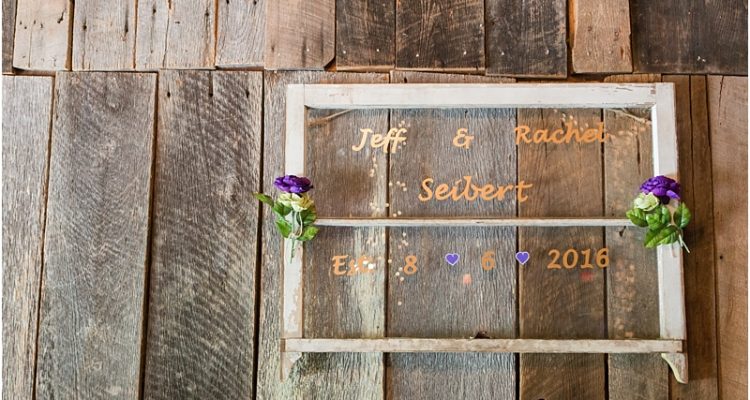 Jeff & Rachel
Seibert
Est. 8 6 2016